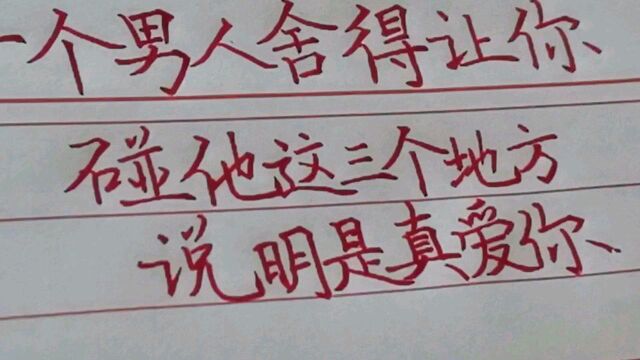 一个男人舍得让你
碰他这三个地方
说明是真爱你